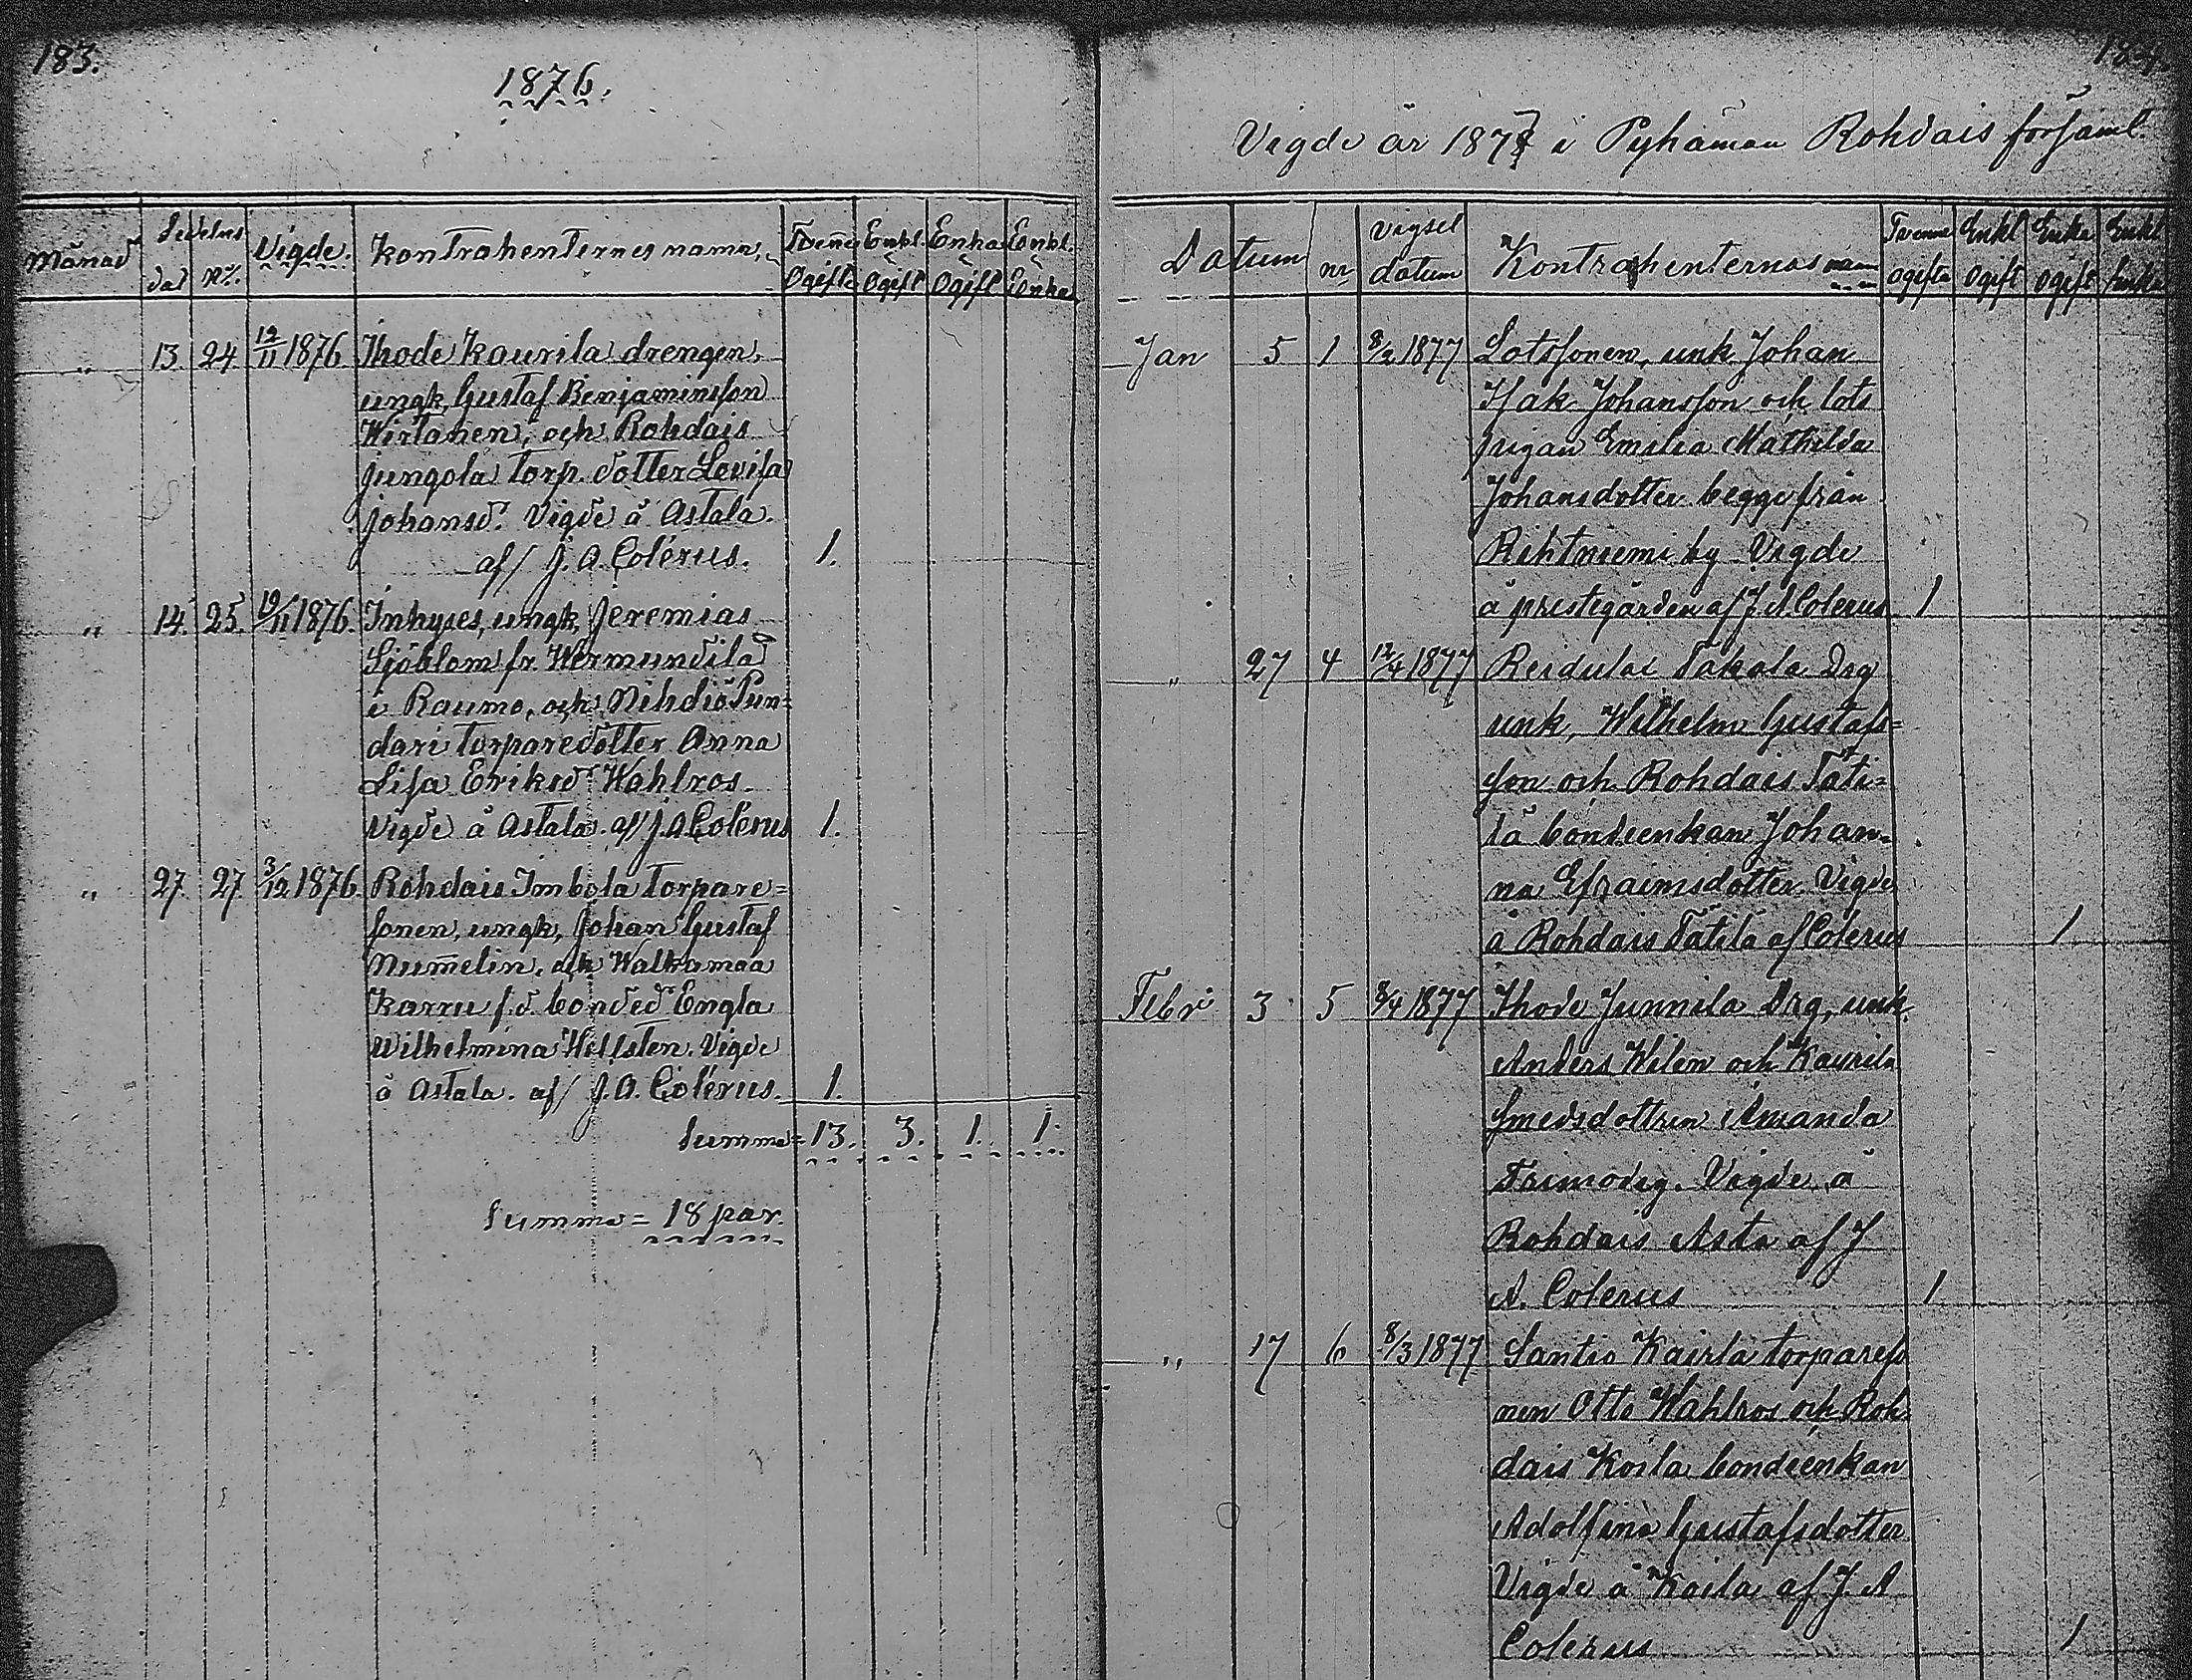 183.
1876.
Månad
Sedelns
dat
No.
Vigde.
Kontrahenternes namn.
Tvenne Ogifta
Enkl. Ogift
Enka Ogift
Enkl. Enka
" 13. 24. 12/11 1876 Ihode Kaurila drengen,
ungk, Gustaf Benjaminsson
Wirtanen, och Rohdais
Jungola torp. dotter Lovisa
Johansd. Vigde å Astala.
af/ J. A. Colérus. 1.
" 14. 25. 19/11 1876. Inhyses, ungk, Jeremias
Sjöblom fr. Wermundila
i Raumo, och Nihdiö Pun-
dari torparedotter Anna
Lisa Eriksd Wahlros.
Vigde å Astala. af/ J. A. Colérus 1.
" 27. 27. 3/12 1876. Rohdais Imbola torpare-
sonen, ungk, Johan Gustaf
Num̅elin. och Walkamaa
Karru f. d. bonded. Engla
Wilhelmina Hellsten. Vigde
å Astala. af/ J. A. Colérus. 1.
Summa = 13. 3. 1. 1.
Summa = 18 par.
184.
Vigde år 1877 i Pyhämaa Rohdais församl.
Datum
nr
Vigsel datum
Kontrahenternas namn
Tvenne ogifta
Enkl Ogift
Enka ogift
Enkl Enka
Jan 5 1 8/2 1877 Lotssonen, unk Johan
Isak Johansson och lots
pigan Emilia Mathilda
Johansdotter begge från
Rihtniemi by Vigde
å prestegården af J. A. Colerus 1
" 27 4 12/4 1877 Reidulai Takala Drg
unk, Wilhelm Gustafs=
son och Rohdais Täti=
lä bondeenkan Johan-
na Efraimsdotter Vigde
å Rohdais Tätilä af Colerus 1
Febr 3 5 8/4 1877 Ihode Junnila Drg, unk.
Anders Wilen och Kaurila
smedsdottren Amanda
Frimodig. Vigde å
Rohdais Asta af J
A. Colerus 1
" 17 6 8/3 1877 Santio Kairla torpareso
nen Otto Wahlros och Roh-
dais Koila bondeenkan
Adolfina Gustafsdotter
Vigde å Koila af J. A
Colerus 1